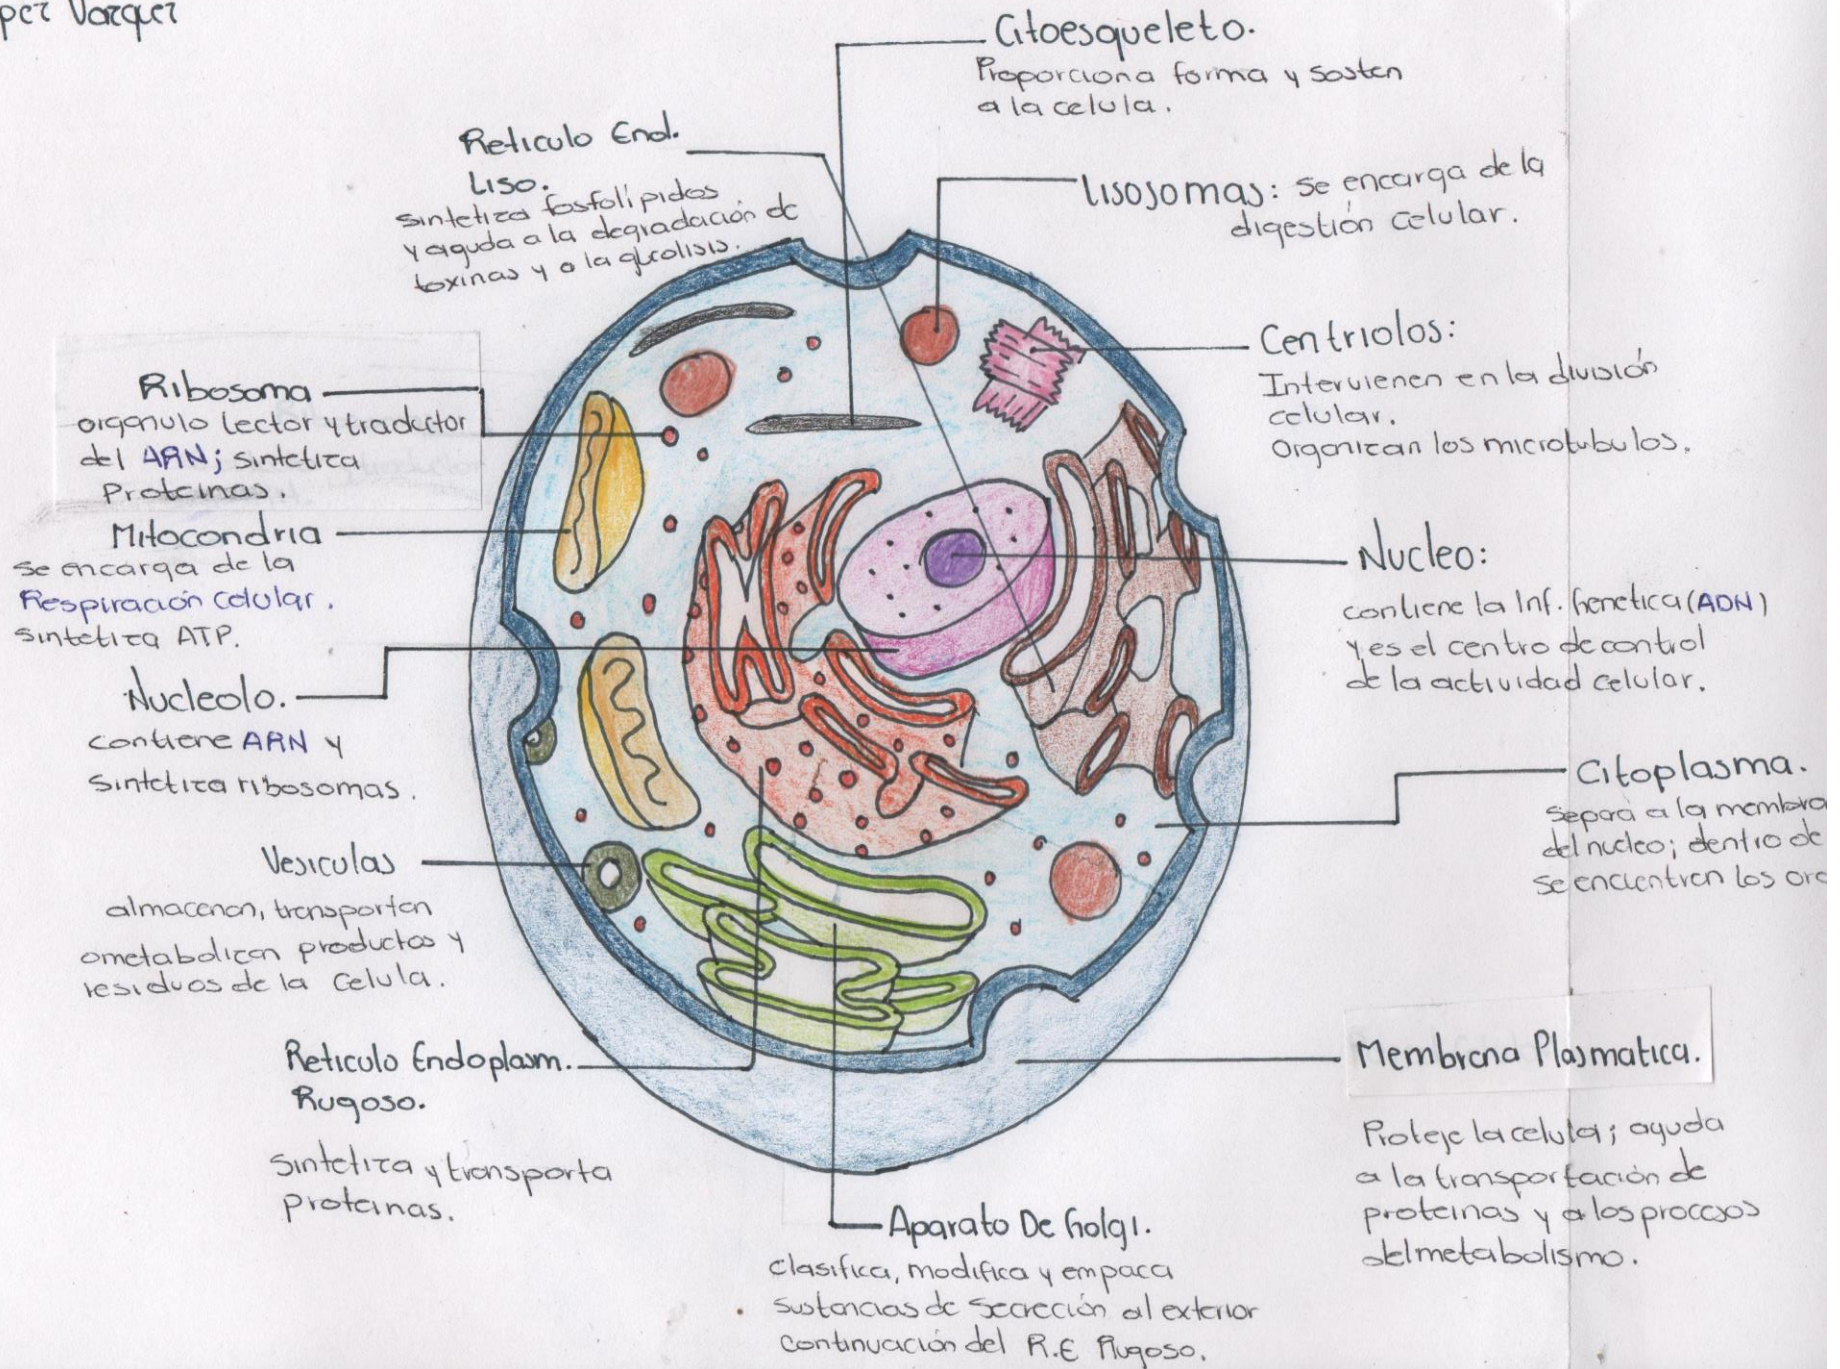 Vazquez
Citoesqueleto.
Proporciona forma y sosten
a la celula.
Reticulo End.
Liso.
sintetiza fosfolípidos
y ayuda a la degradación de
toxinas y a la glicolisis.
Lisosomas: se encarga de la
digestión celular.
Ribosoma
organulo lector y traductor
del ARN; sintetiza
Proteinas.
Centriolos:
Intervienen en la división
celular.
Organizan los microtubulos.
Mitocondria
se encarga de la
Respiración celular.
sintetiza ATP.
Nucleo:
contiene la Inf. Genetica (ADN)
y es el centro de control
de la actividad celular.
Nucleolo.
contiene ARN y
sintetiza ribosomas.
Citoplasma.
separa a la membra
del nucleo; dentro de
se encuentren los
Vesiculas
almacenan, transportan
o metabolizan productos y
residuos de la celula.
Reticulo Endoplasm.
Rugoso.
sintetiza y transporta
proteinas.
Membrana Plasmatica.
Proteje la celula; ayuda
a la transportación de
proteinas y a los procesos
del metabolismo.
Aparato De Golgi.
clasifica, modifica y empaca
sustancias de secreción al exterior
continuación del R.E Rugoso.